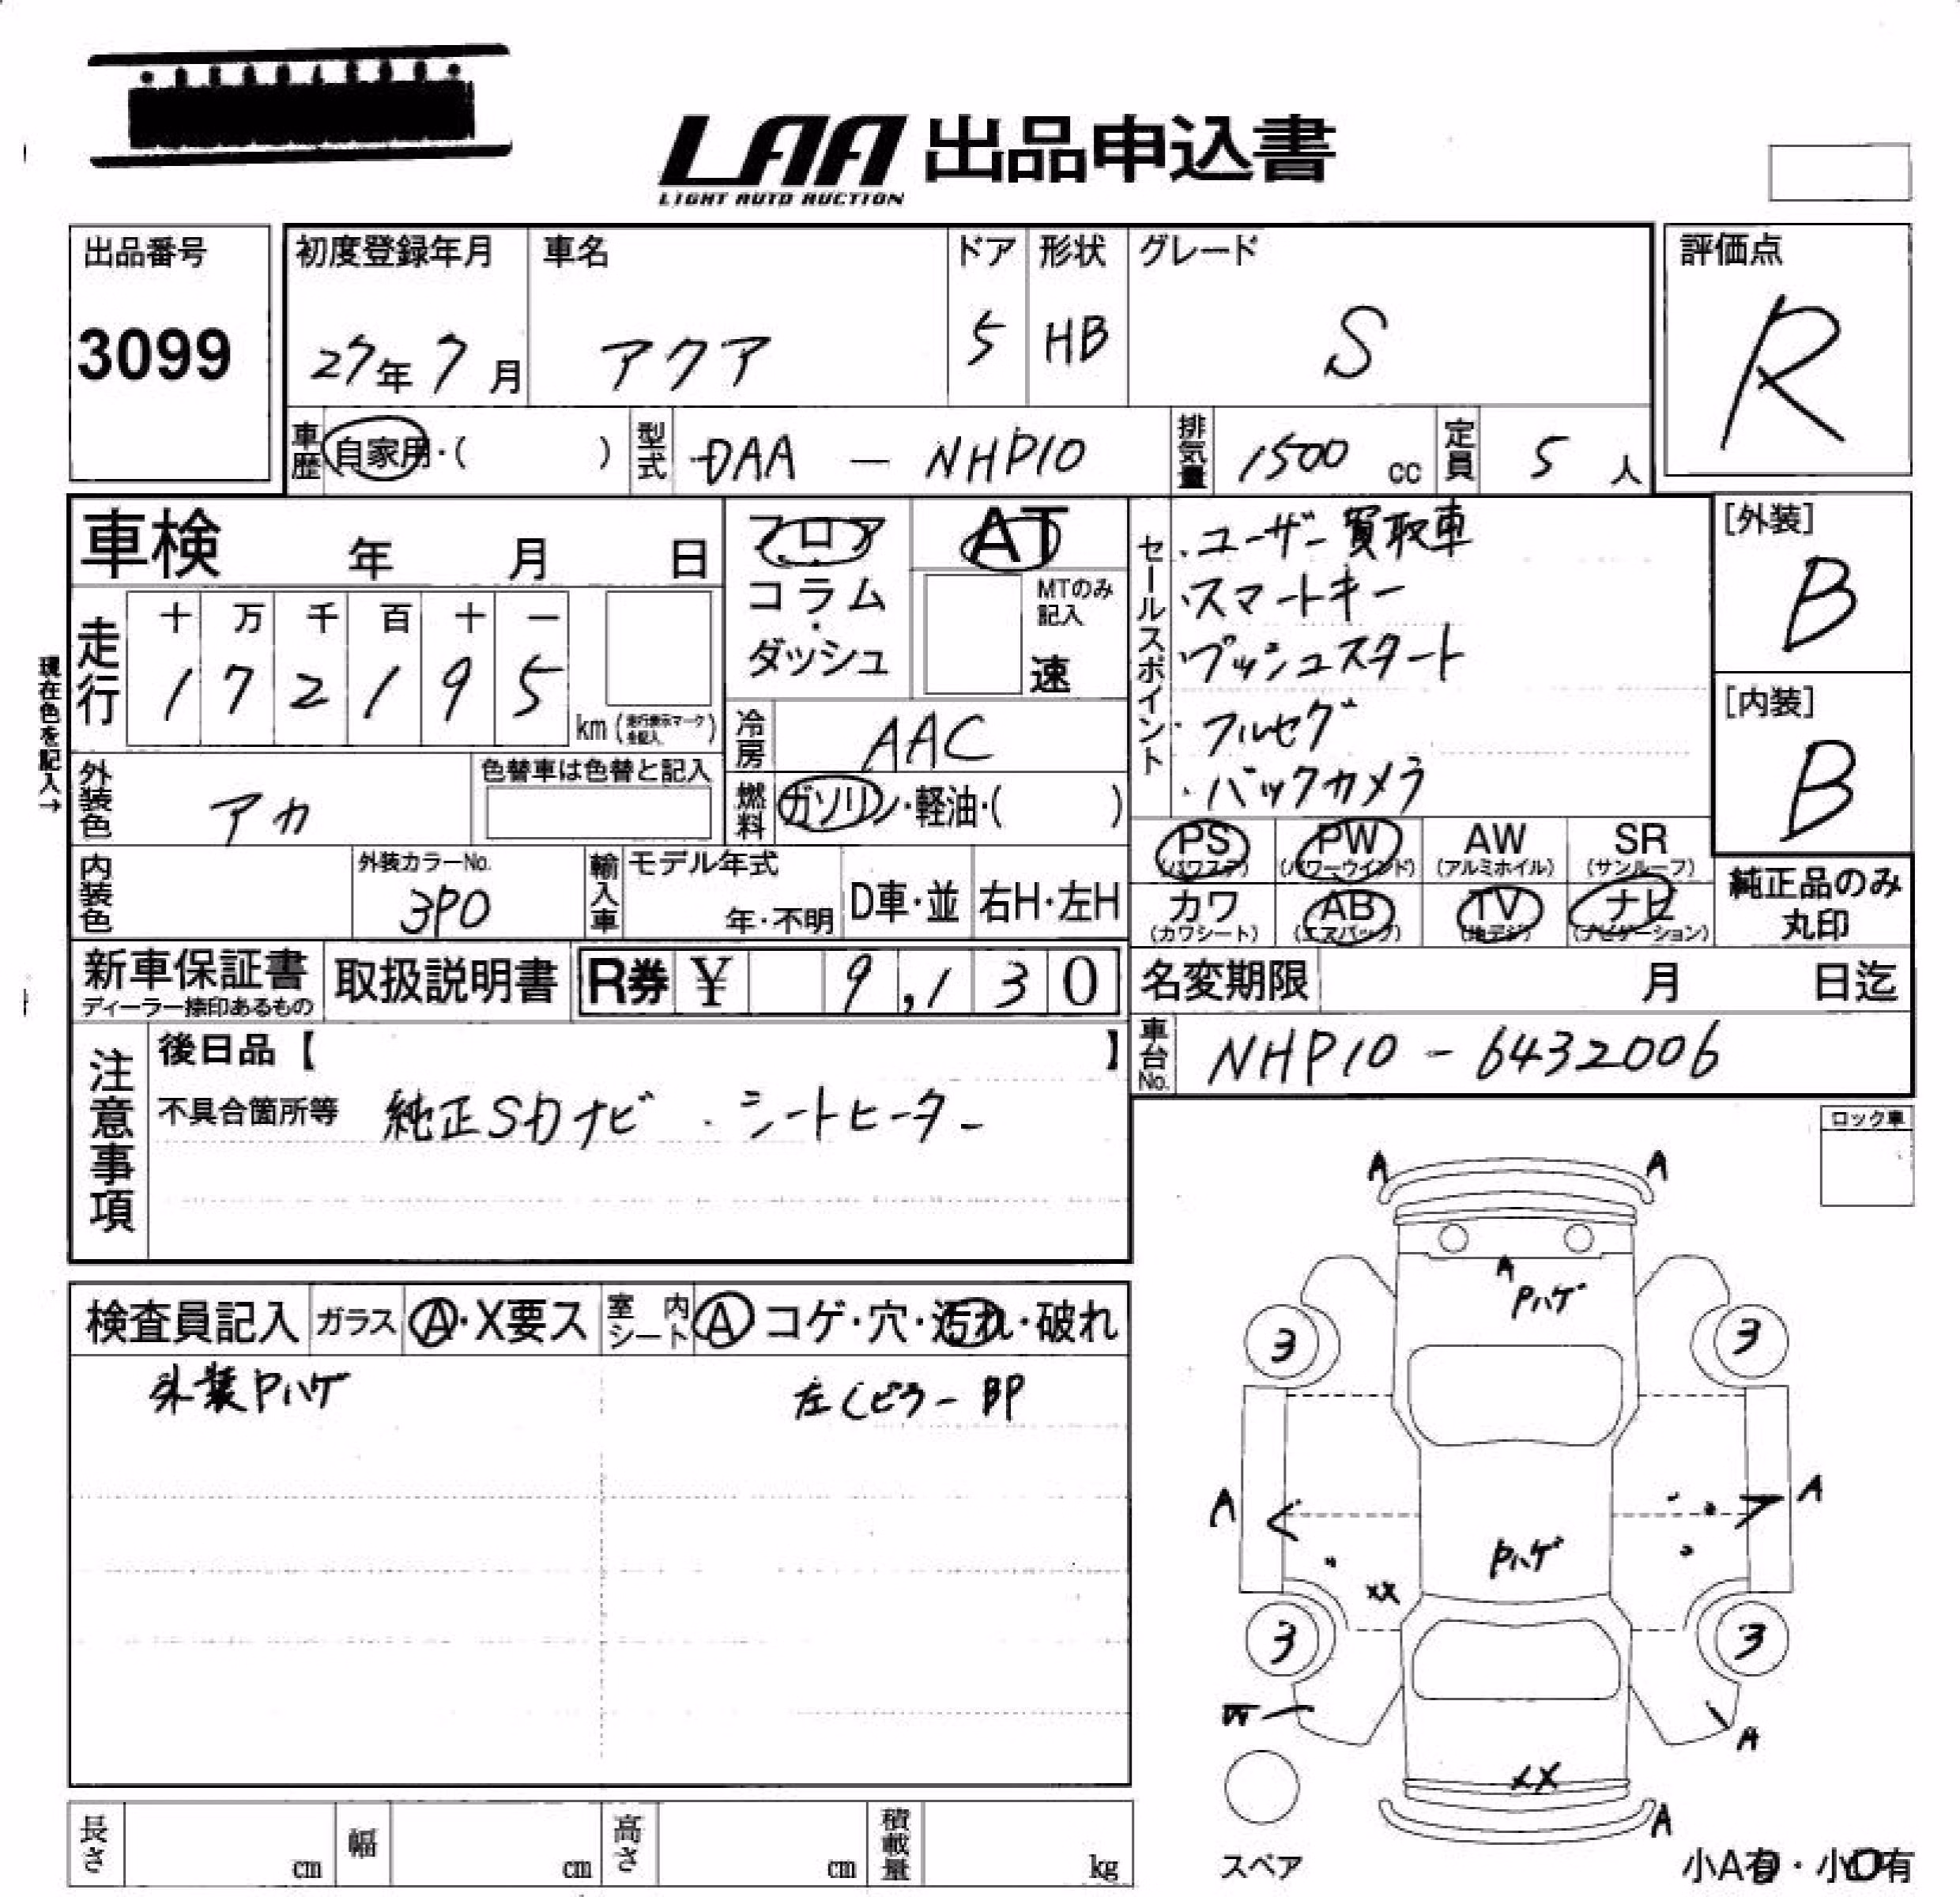 LAA 出品申込書
LIGHT AUTO AUCTION
出品番号
3099
初度登録年月
27年7月
車名
アクア
ドア
5
形状
HB
グレード
S
評価点
R
車歴 自家用・( )
型式 DAA - NHP10
排気量 1500 cc
定員 5 人
車検 年 月 日
フロア・コラム・ダッシュ
AT
MTのみ記入
速
セールスポイント
・ユーザー買取車
・スマートキー
・プッシュスタート
・フルセグ
・バックカメラ
[外装]
B
[内装]
B
現在色を記入→
走行
十 万 千 百 十 一
1 7 2 1 9 5
km (走行表示マークを記入)
冷房 AAC
外装色 アカ
色替車は色替と記入
燃料 ガソリン・軽油・( )
内装色
外装カラーNo.
3P0
輸入車
モデル年式
年・不明
D車・並
右H・左H
PS (パワステ)
PW (パワーウインド)
AW (アルミホイル)
SR (サンルーフ)
カワ (カワシート)
AB (エアバック)
TV (地デジ)
ナビ (ナビゲーション)
純正品のみ丸印
新車保証書
ディーラー捺印あるもの
取扱説明書
R券 ¥ 9,130
名変期限 月 日迄
車台No. NHP10 - 6432006
注意事項
後日品【 】
不具合箇所等 純正SDナビ ・シートヒーター
ロック車
検査員記入
ガラス A・X要ス
室内シート A コゲ・穴・汚れ・破れ
外装Pハゲ
左Cピラー BP
A A
A
Pハゲ
3 3
A A
Pハゲ
XX
3 3
A
XX
A
スペア
小A有・小 有
長さ cm
幅 cm
高さ cm
積載量 kg